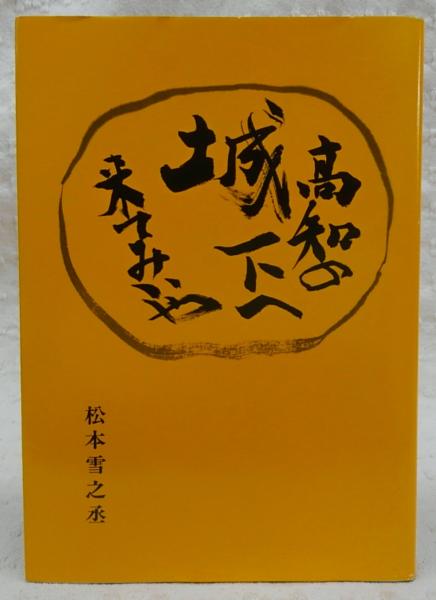 高知の
城下へ
来てみいや
松本雪之丞